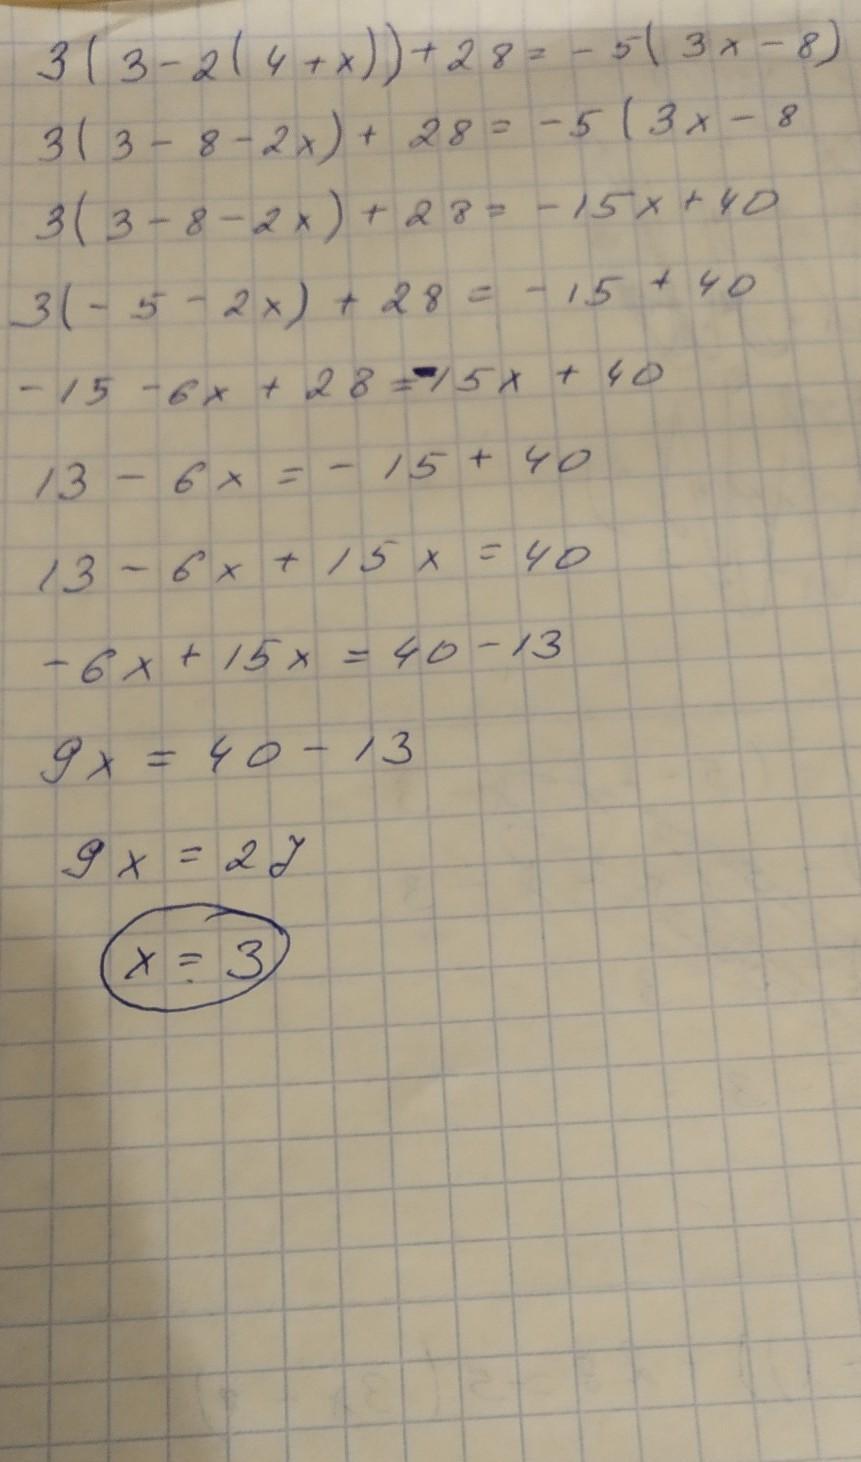 3(3-2(4+x))+28=-5(3x-8)
3(3-8-2x)+28=-5(3x-8
3(3-8-2x)+28=-15x+40
3(-5-2x)+28=-15+40
-15-6x+28=-15x+40
13-6x=-15+40
13-6x+15x=40
-6x+15x=40-13
9x=40-13
9x=27
x=3